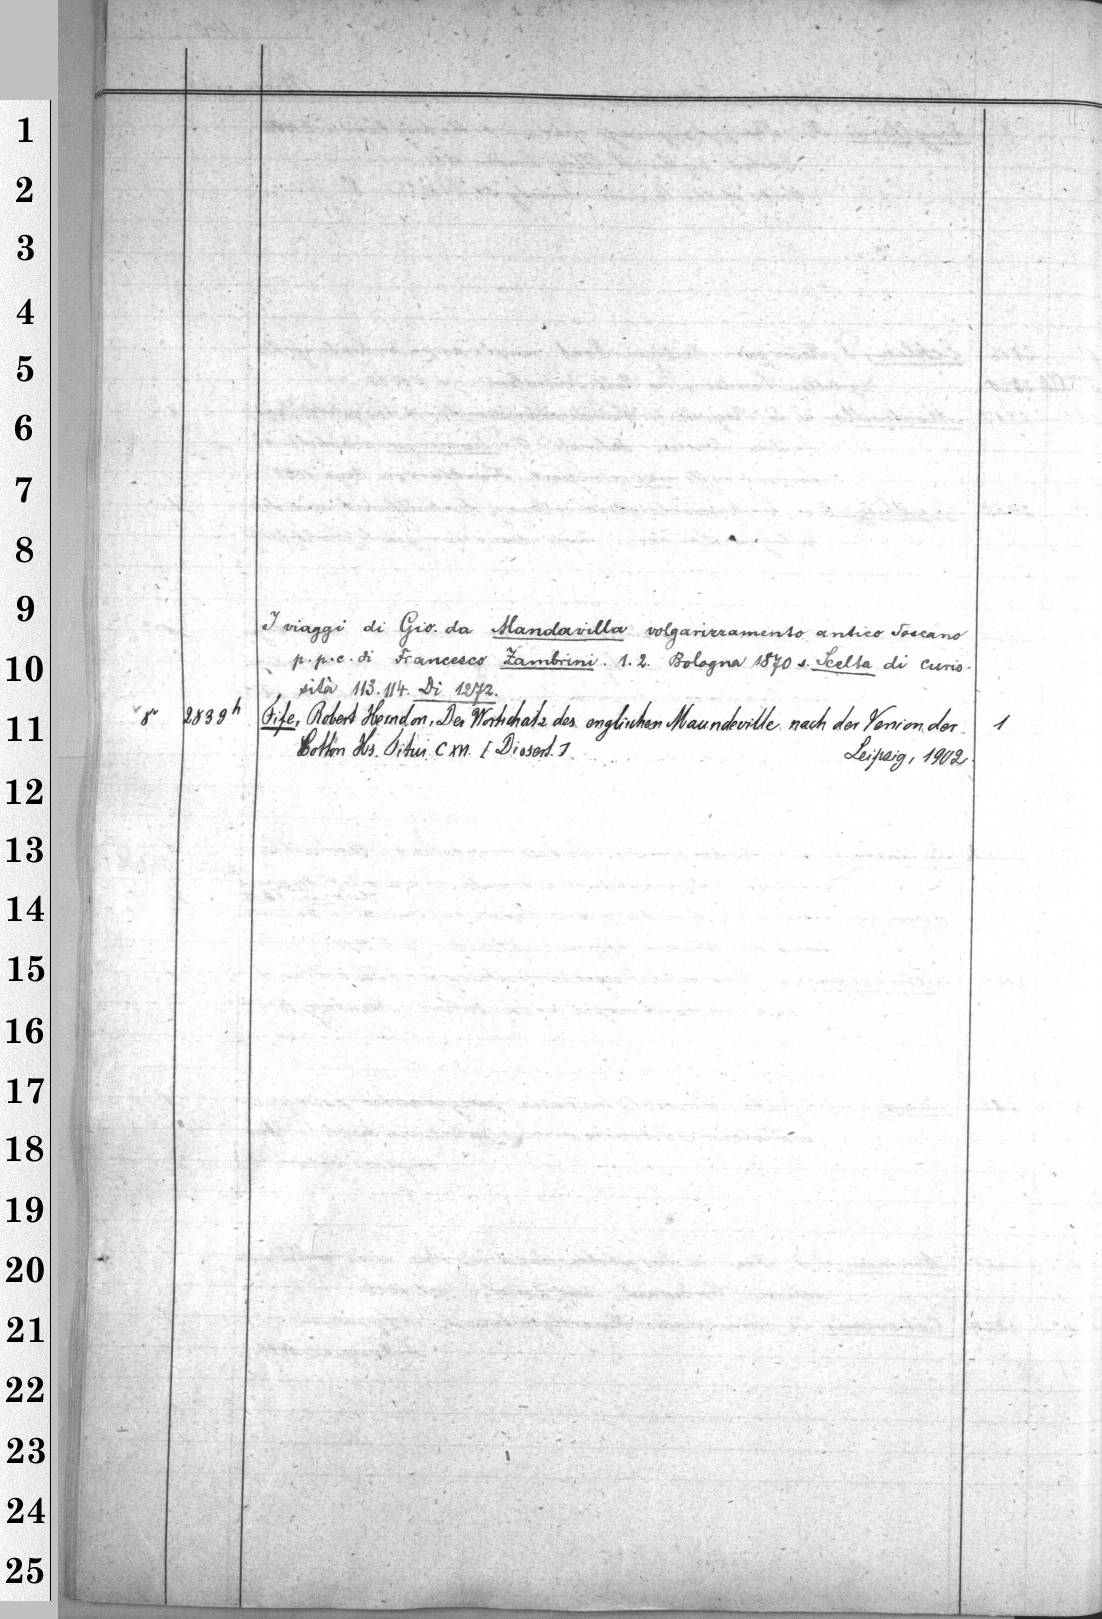 1
2
3
4
5
6
7
8
9
I viaggi di Gio. da Mandavilla volgarizzamento antico Toscano
10
p. p. c. di Francesco Zambrini. 1. 2. Bologna 1870 s. Scelta di curio-
sità 113. 114. Di 1272.
11
8° 2839h Fife, Robert Herndon, Der Wortschatz des englischen Maundeville nach der Version der 1
Cotton Hs. Titus C XVI. [Dissert.] Leipzig, 1902.
12
13
14
15
16
17
18
19
20
21
22
23
24
25